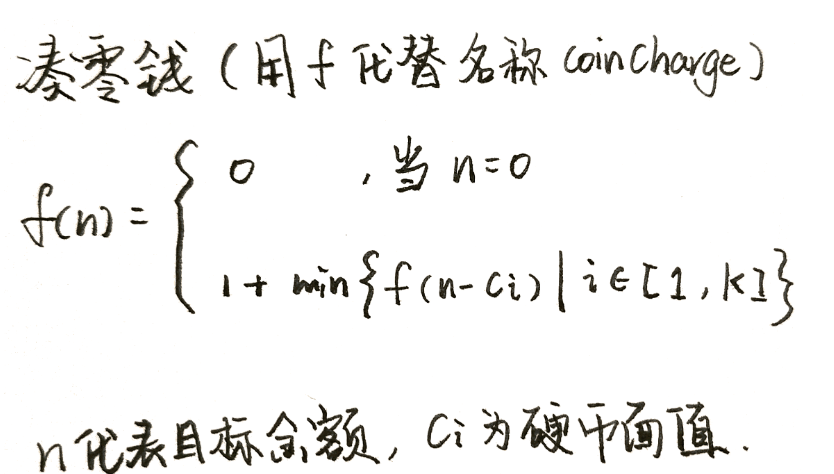 凑零钱(用f代替名称coinCharge)
f(n) = { 0 , 当 n=0
1 + min{f(n-Ci) | i∈[1,k]}
n代表目标金额, Ci为硬币面值.